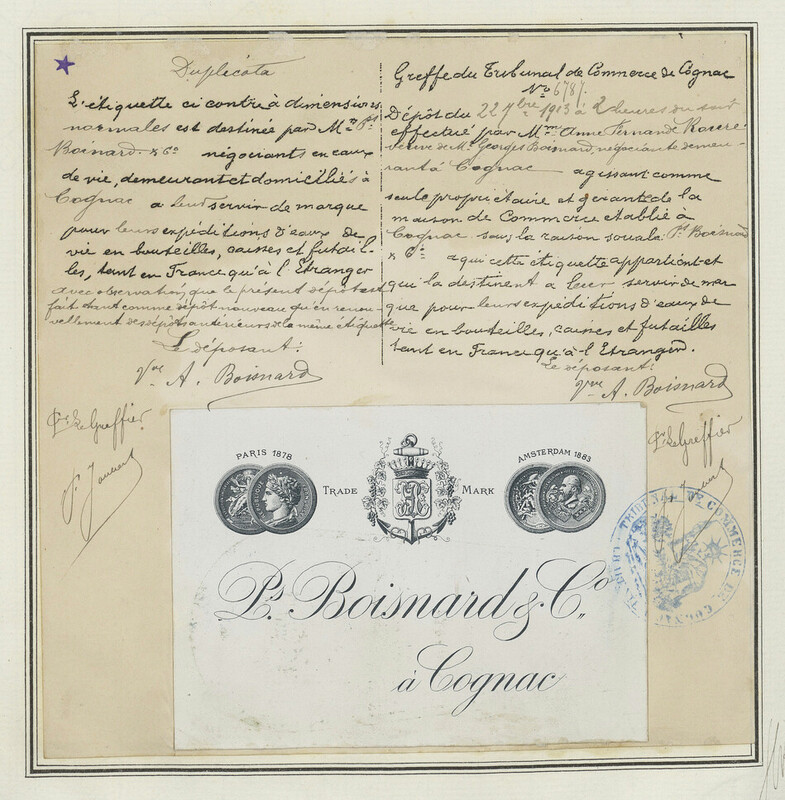 Duplicata
L'étiquette ci contre à dimensions
normales est destinée par Mrs Ps
Boisnard & Co négociants en eaux
de vie, demeurant et domiciliés à
Cognac a leur servir de marque
pour leurs expéditions d'eaux de
vie en bouteilles, caisses et futail-
les, tant en France qu'à l'Etranger
avec observation que le présent dépôt est
fait tant comme dépôt nouveau qu'en renou-
vellement des dépôts antérieurs de la même étiquette
Le déposant:
Vve A. Boisnard
Greffe du Tribunal de Commerce de Cognac
No 6787.
Dépôt du 22 7bre 1913 à 2 heures du soir
effectué par Mme Anne Fernande
veuve de Mr Georges Boisnard, négociante demeu-
rant à Cognac agissant comme
seule propriétaire et gérante de la
maison de Commerce établie à
Cognac sous la raison sociale Ps Boisnard
& Co a qui cette étiquette appartient et
qui la destinent a leur servir de mar
que pour leurs expéditions d'eaux de
vie en bouteilles, caisses et futailles
tant en France qu'à l'Etranger.
Le déposant:
Vve A. Boisnard
Pr Le Greffier
Pr Le Greffier
PARIS 1878
AMSTERDAM 1883
TRADE MARK
Ps. Boisnard & Co.,
à Cognac
TRIBUNAL DE COMMERCE DE COGNAC